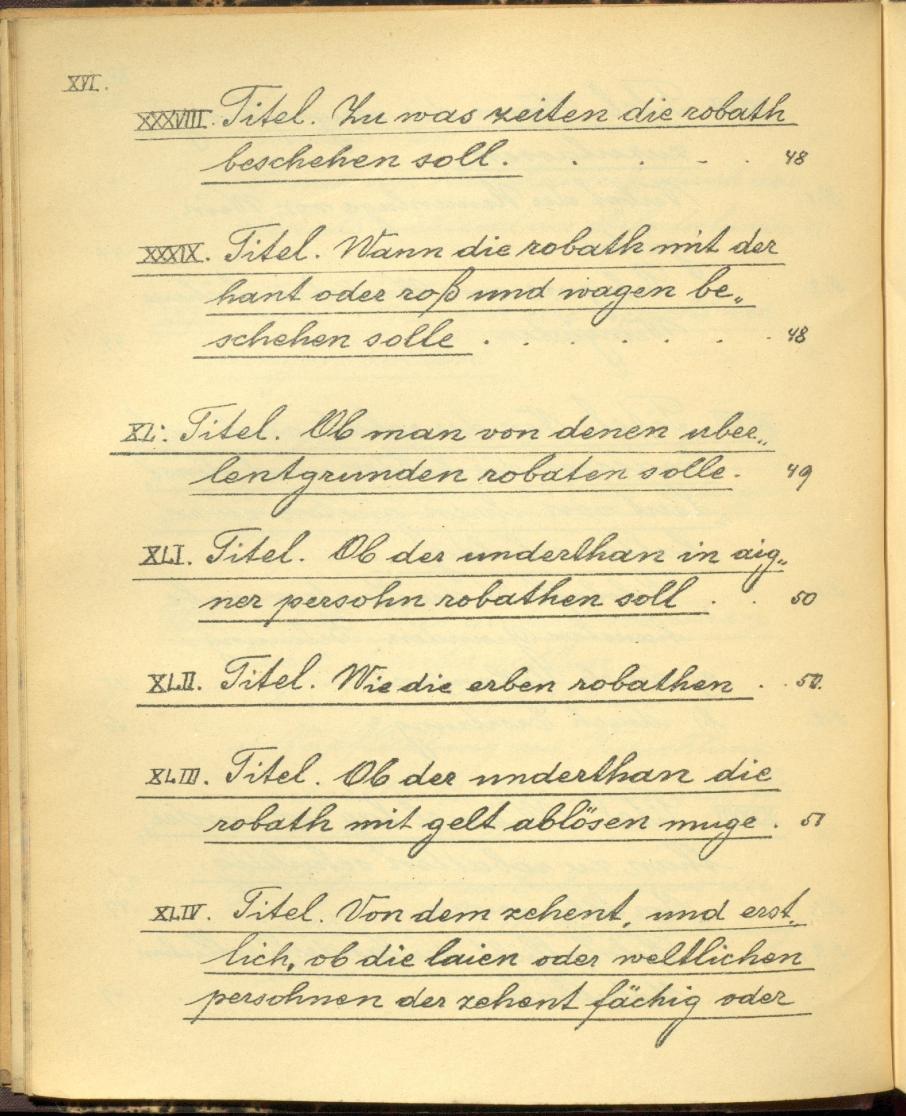 XVI.
XXXVIII. Titel. Zu was zeiten die robath
beschehen soll. . . . . . 48
XXXIX. Titel. Wann die robath mit der
hant oder roß und wagen be„
schehen solle . . . . . . 48
XL. Titel. Ob man von denen uber„
lentgrunden robaten solle. 49
XLI. Titel. Ob der underthan in aig„
ner persohn robathen soll . . 50
XLII. Titel. Wie die erben robathen . . 50.
XLIII. Titel. Ob der underthan die
robath mit gelt ablösen muge . 51
XLIV. Titel. Von dem zehent, und erst„
lich, ob die laien oder weltlichen
persohnen der zehent fächig oder